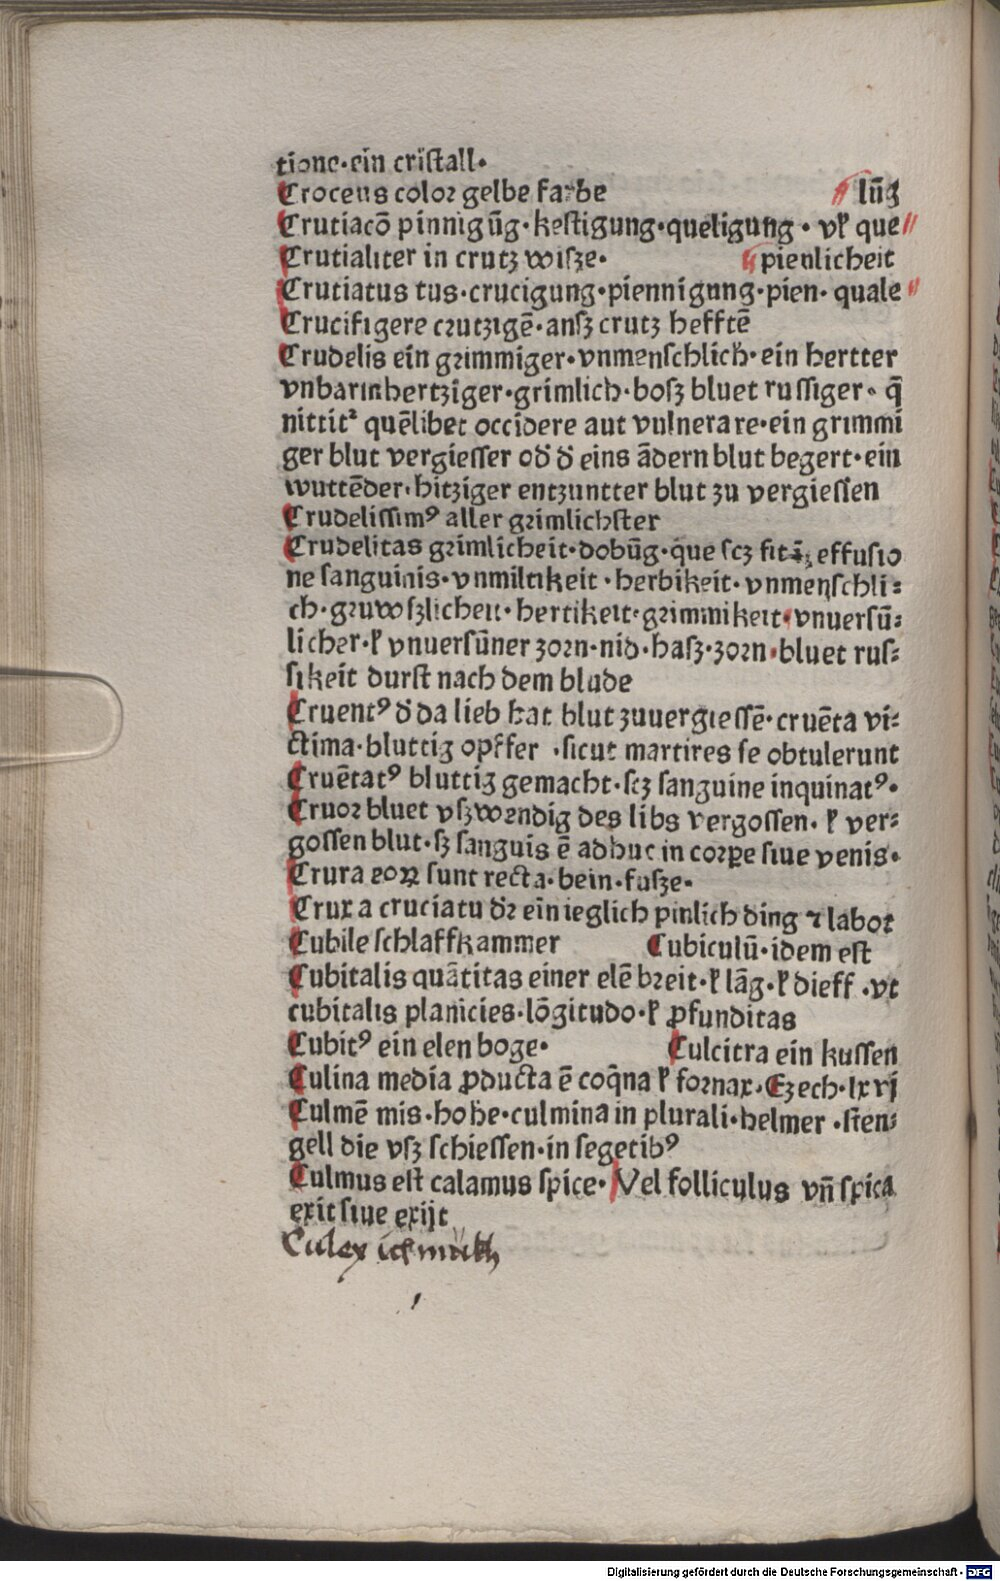 tione·ein cristall·
Croceus color gelbe farbe lūg
Crutiacō pinnigūg·kestigung·queligung·vƚ que
Crutialiter in crutz wisze· pienlicheit
Crutiatus tus·crucigung·piennigung·pien·quale
Crucifigere crutzigē·ansz crutz hefftē
Crudelis ein grimmiger·vnmenschlich·ein hertter
vnbarmhertziger·grimlich·bosz bluet russiger·q̄
nittitᷣ quēlibet occidere aut vulnerare·ein grimmi
ger blut vergiesser od̄ d̄ eins ādern blut begert·ein
wuttēder·hitziger entzuntter blut zu vergiessen
Crudelissimꝰ aller grimlichster
Crudelitas grimlicheit·dobūg·que scz fit effusio
ne sanguinis·vnmiltikeit·herbikeit·vnmenschli⸗
ch·gruwszlicheit·hertikeit·grimmikeit·vnuersū⸗
licher·ƚ vnuersūner zorn·nid·hasz·zorn·bluet rus⸗
sikeit durst nach dem blude
Cruentꝰ d̄ da lieb hat blut zuuergiessē·cruēta vi⸗
ctima·bluttig opffer·sicut martires se obtulerunt
Cruētatꝰ bluttig gemacht·scz sanguine inquinatꝰ·
Cruor bluet vszwendig des libs vergossen·ƚ ver⸗
gossen blut·sz sanguis ē adhuc in corꝑe siue venis·
Crura eoꝝ sunt recta·bein·fusze·
Crux a cruciatu dr̄ ein ieglich pinlich ding ⁊ labor
Cubile schlaffkammer Cubiculū·idem est
Cubitalis quātitas einer elē breit·ƚ lāg·ƚ dieff·vt
cubitalis planicies·lōgitudo·ƚ ꝓfunditas
Cubitꝰ ein elen boge· Culcitra ein kussen
Culina media ꝓducta ē coq̄na ƚ fornax·Ezech·lxvi
Culmē mis·hohe·culmina in plurali·helmer·sten⸗
gell die vsz schiessen·in segetibꝰ
Culmus est calamus spice·Vel folliculus vn̄ spica
exit siue exijt
Culex